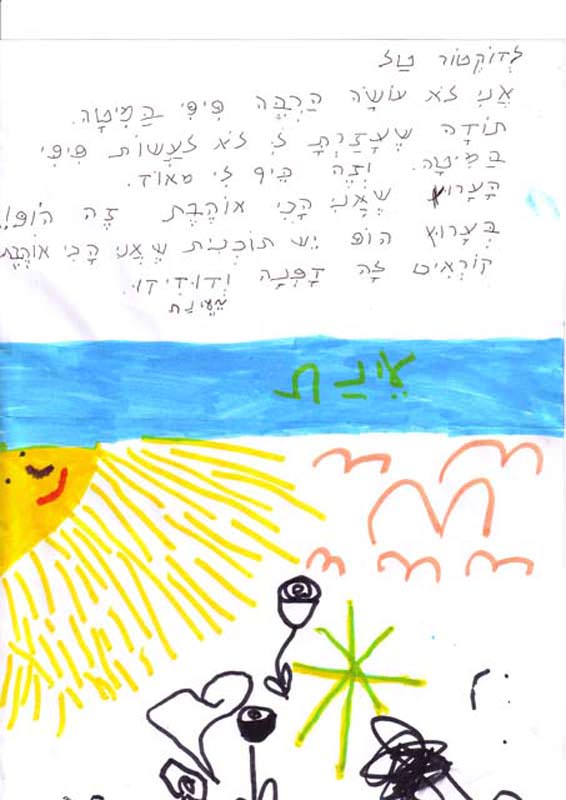 לְדוֹקְטוֹר טַל
אֲנִי לֹא עוֹשָׂה הַרְבֵּה פִּיפִּי בַּמִיטָה.
תוֹדָה שֶעָזַרְתָ לִי לֹא לַעֲשׂוֹת פִּיפִּי
בַּמִיטָה. וְזֶה כֵּיף לִי מְאוֹד.
הָעָרוּץ שֶאֲנִי הָכִי אוֹהֶבֶת זֶה הוֹפּ!!
בְּעָרוּץ הוֹפּ יֵש תוֹכְנִית שֶאֲנִי הָכִי אוֹהֶבֶת
קוֹרְאִים לָה דָפְנָה וְדוּדִידוּ.
מֵ
עֵינַת